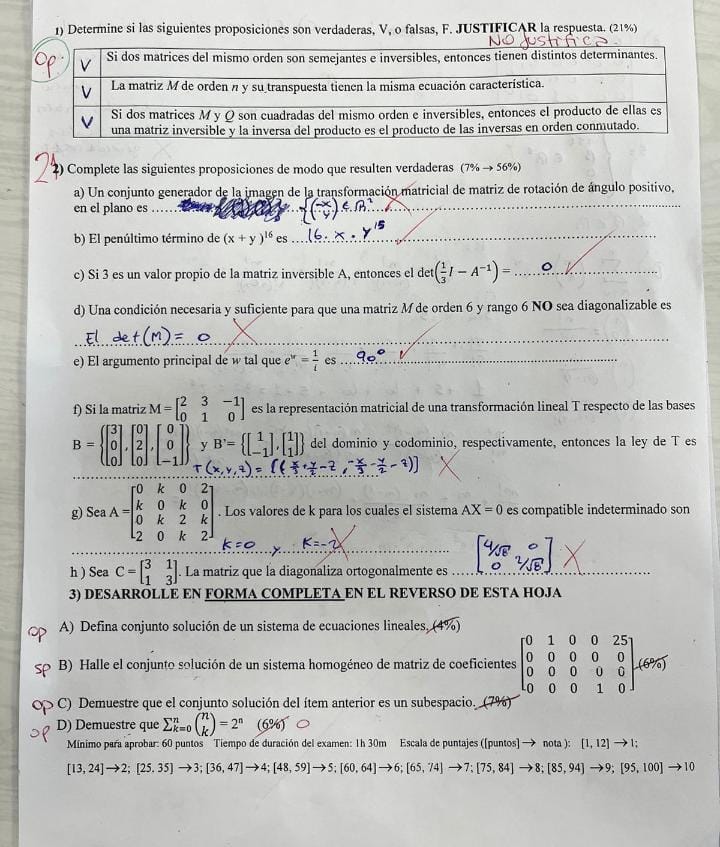 1) Determine si las siguientes proposiciones son verdaderas, V, o falsas, F. JUSTIFICAR la respuesta. (21%)
No justifica
0p
V Si dos matrices del mismo orden son semejantes e inversibles, entonces tienen distintos determinantes.
V La matriz M de orden n y su transpuesta tienen la misma ecuación característica.
V Si dos matrices M y Q son cuadradas del mismo orden e inversibles, entonces el producto de ellas es
una matriz inversible y la inversa del producto es el producto de las inversas en orden conmutado.
21
2) Complete las siguientes proposiciones de modo que resulten verdaderas (7% → 56%)
a) Un conjunto generador de la imagen de la transformación matricial de matriz de rotación de ángulo positivo,
en el plano es ...... {(-x y) ∈ R²
b) El penúltimo término de (x + y )¹⁶ es ....16. x . y¹⁵
c) Si 3 es un valor propio de la matriz inversible A, entonces el det(1/3 I − A⁻¹) = ...... 0
d) Una condición necesaria y suficiente para que una matriz M de orden 6 y rango 6 NO sea diagonalizable es
El det(M) = 0
e) El argumento principal de w tal que eʷ = 1/i es ....90°
f) Si la matriz M = [2 3 −1; 0 1 0] es la representación matricial de una transformación lineal T respecto de las bases
B = {[3 0 0], [0 2 0], [0 0 −1]} y B'= {[1 −1], [1 1]} del dominio y codominio, respectivamente, entonces la ley de T es
T(x,y,z) = [(x/3 + y/2 - z, -x/3 - y/2 - z)]
g) Sea A = [0 k 0 2; k 0 k 0; 0 k 2 k; 2 0 k 2]. Los valores de k para los cuales el sistema AX = 0 es compatible indeterminado son
k=0 y k=-2
h ) Sea C = [3 1; 1 3]. La matriz que la diagonaliza ortogonalmente es ...... [4/√8 0; 0 2/√8]
3) DESARROLLE EN FORMA COMPLETA EN EL REVERSO DE ESTA HOJA
0p A) Defina conjunto solución de un sistema de ecuaciones lineales. (4%)
5p B) Halle el conjunto solución de un sistema homogéneo de matriz de coeficientes [0 1 0 0 25; 0 0 0 0 0; 0 0 0 0 0; 0 0 0 1 0] (6%)
0p C) Demuestre que el conjunto solución del ítem anterior es un subespacio. (7%)
0p D) Demuestre que ∑ₖ₌₀ⁿ (n k) = 2ⁿ (6%) 0
Mínimo para aprobar: 60 puntos Tiempo de duración del examen: 1h 30m Escala de puntajes ([puntos] → nota ): [1, 12] → 1;
[13, 24]→2; [25, 35] →3; [36, 47]→4; [48, 59]→5; [60, 64]→6; [65, 74] →7; [75, 84] →8; [85, 94] →9; [95, 100] →10